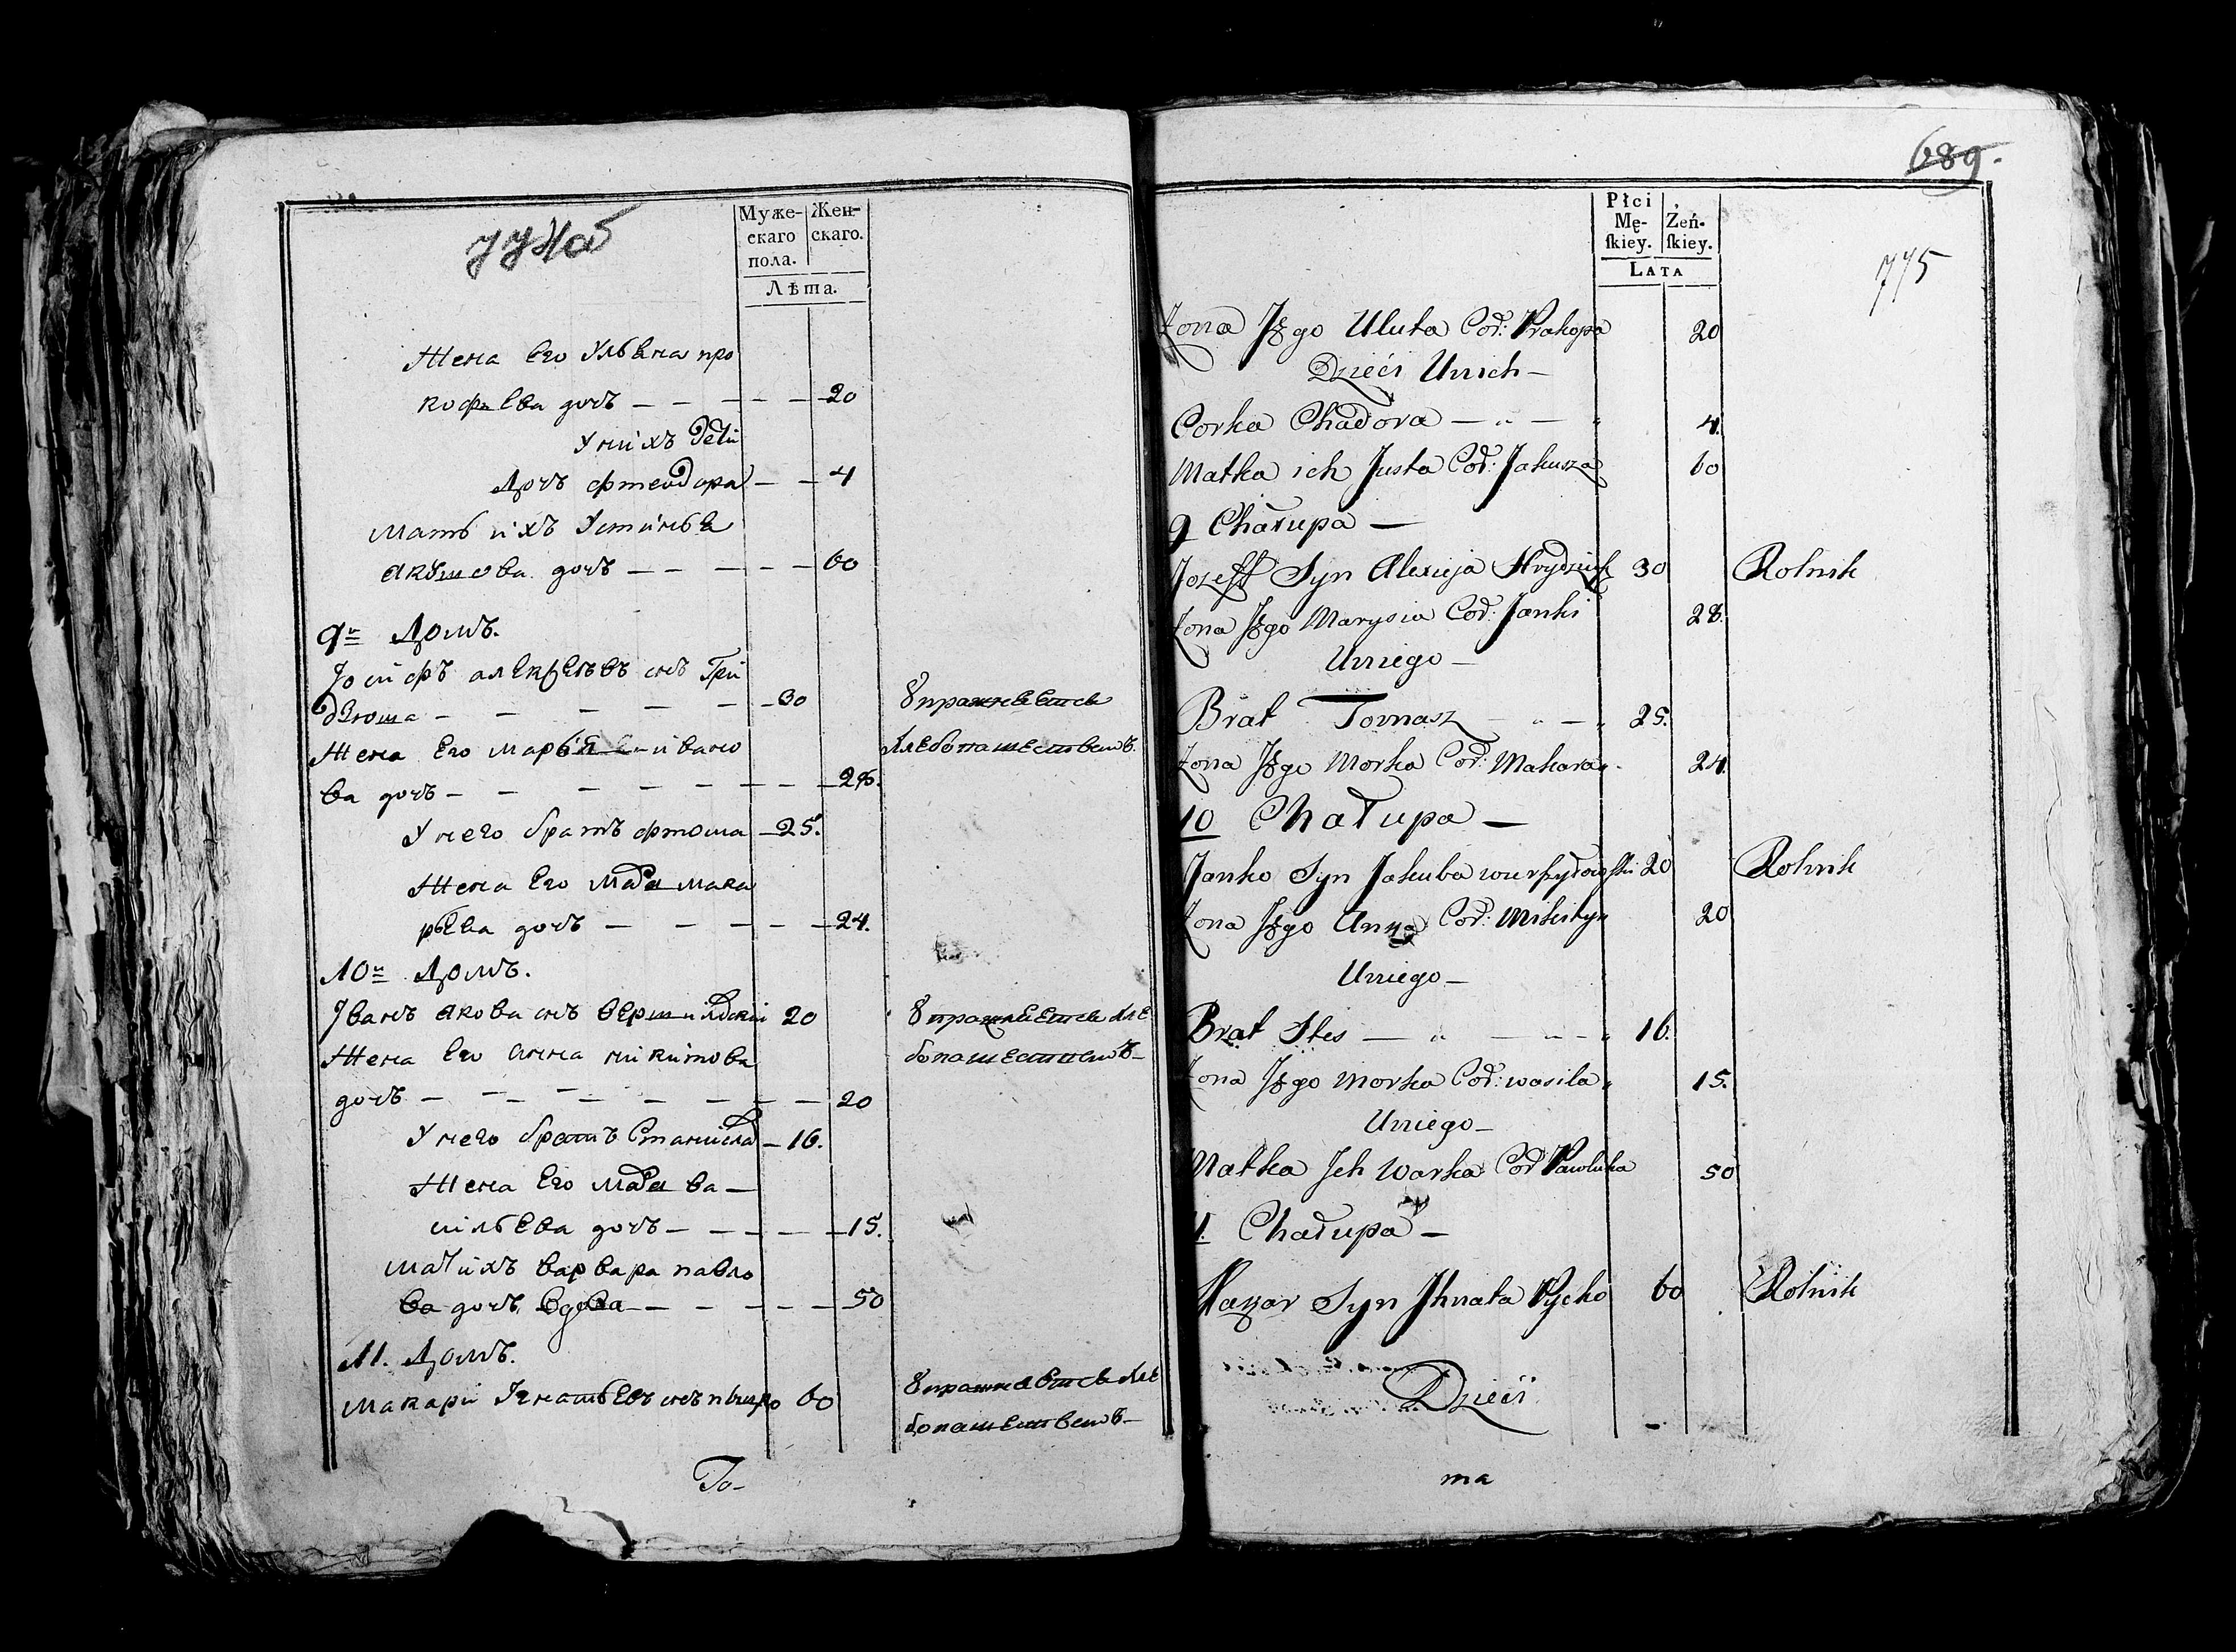 Муже-
скаго
пола.
Жен-
скаго.
Лѣта.
Жена Его Ульяна про
кофьева дочь — — — — — 20
У нихъ дети
Дочь фтеодора — — 4
Мать ихъ Устинья
якушова дочь — — — — — 60
9й Домъ.
Іосифъ алекѣевъ снъ Гри
— — — — — 30
Упражняется
Хлебопашествомъ.
Жена Его марья ивано
ва дочь — — — — — — — 28.
У него братъ фтома — 25.
Жена Его макa
рьева дочь — — — — — 24.
10й Домъ.
Іванъ якова снъ 20
Упражняется хле
бопашествомъ —
Жена Его Анна никитова
дочь — — — — — — — 20
У него братъ Станисла — 16.
Жена Его ва —
сильева дочь — — — — — 15.
Мать ихъ варвара павло
ва дочь, вдова — — — — — 50
11. Домъ.
макари Игнатьевъ снъ 60
Упражняется хле
бопашествомъ —
То-
689.
775
Płci
Mę-
ſkiey.
Żeń-
ſkiey.
LATA
Zona Jego Uluta Cod: Prakopa 20
Dzieci Unich —
Corka Chadora — „ — „ 4.
Matka ich Justa Cod: Jakusza 60
9 Chałupa —
Jozeff Syn Alexieja 30 Rolnik
Zona Jego Marysia Cod: Janki 28.
Uniego —
Brat Tomasz — „ — „ 25.
Zona Jego Morka Cod: Makara „ 24.
10 Chałupa —
Janko Syn Jakuba 20 Rolnik
Zona Jego Anna Cod: Mikityn 20
Uniego —
Brat Stes — „ — „ — „ 16.
Zona Jego Morka Cod: wasila „ 15.
Uniego —
Matka Jch Warka Cod Pawluka 50
11. Chałupa —
Nazar Syn Jhnata 60 Rolnik
Dzieci
ma